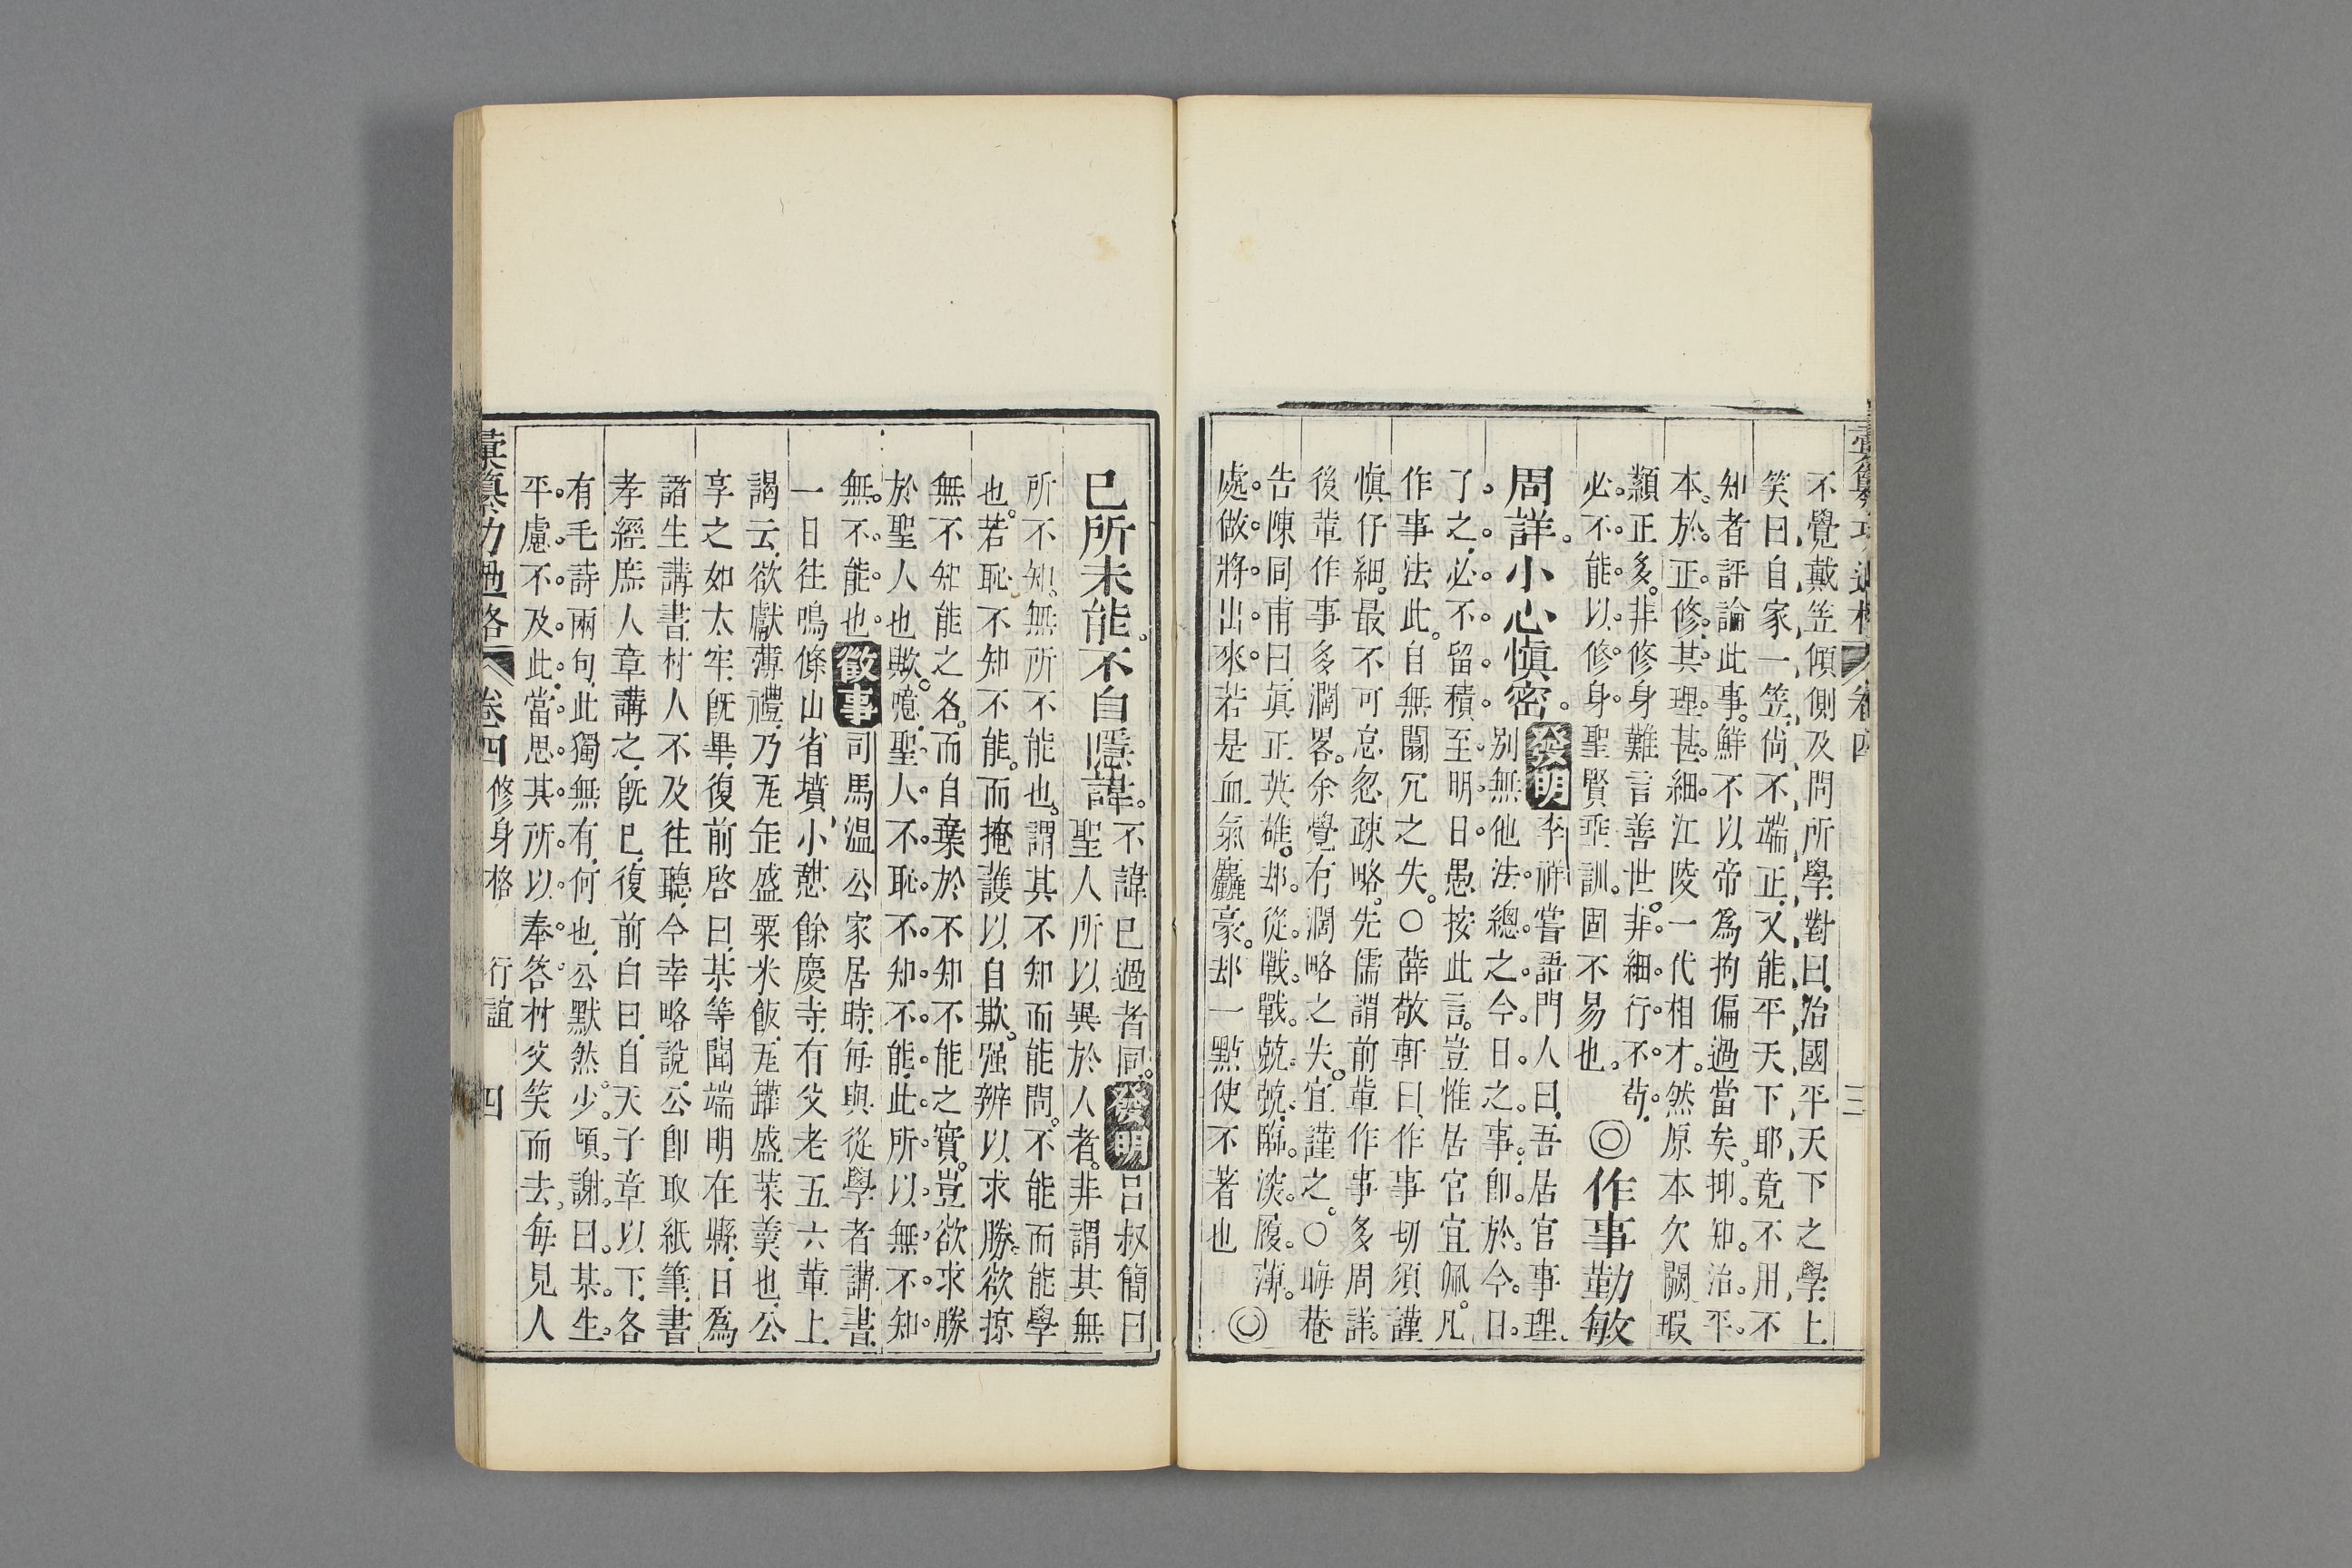 彙纂功過格 卷四 三
不覺戴笠傾側及問所學對曰治國平天下之學上
笑曰自家一笠尙不端正又能平天下耶竟不用不
知者評論此事鮮不以帝爲拘偏過當矣抑知治平
本於正修其理甚細江陵一代相才然原本欠闕瑕
纇正多非修身難言善世非細行不苟
必不能以修身聖賢垂訓固不易也◎作事勤敏
周詳小心愼密發明李祥嘗語門人曰吾居官事理
別無他法總之今日之事卽於今日
了之必不留積至明日愚按此言豈惟居官宜佩凡
作事法此自無闒冗之失○薛敬軒曰作事切須謹
愼仔細最不可怠忽疎略先儒謂前輩作事多周詳
後輩作事多濶畧余覺有濶略之失宜謹之○晦菴
告陳同甫曰眞正英雄却從戰戰兢兢臨淡履薄
處做將出來若是血氣麤豪却一點使不著也◎
已所未能不自隱諱不諱已過者同發明呂叔簡曰
聖人所以異於人者非謂其無
所不知無所不能也謂其不知而能問不能而能學
也若恥不知不能而掩護以自欺强辨以求勝欲掠
無不知能之名而自棄於不知不能之實豈欲求勝
於聖人也歟噫聖人不恥不知不能此所以無不知
無不能也徵事司馬溫公家居時每與從學者講書
一日往鳴條山省墳小憩餘慶寺有父老五六輩上
謁云欲獻薄禮乃瓦缶盛粟米飯瓦罐盛菜羹也公
享之如太牢旣畢復前啓曰某等聞端明在縣日爲
諸生講書村人不及往聽今幸略說公卽取紙筆書
孝經庶人章講之旣已復前白曰自天子章以下各
有毛詩兩句此獨無有何也公默然少頃謝曰某生
平慮不及此當思其所以奉答村父笑而去每見人
彙纂功過格 卷四 修身格 行誼 四